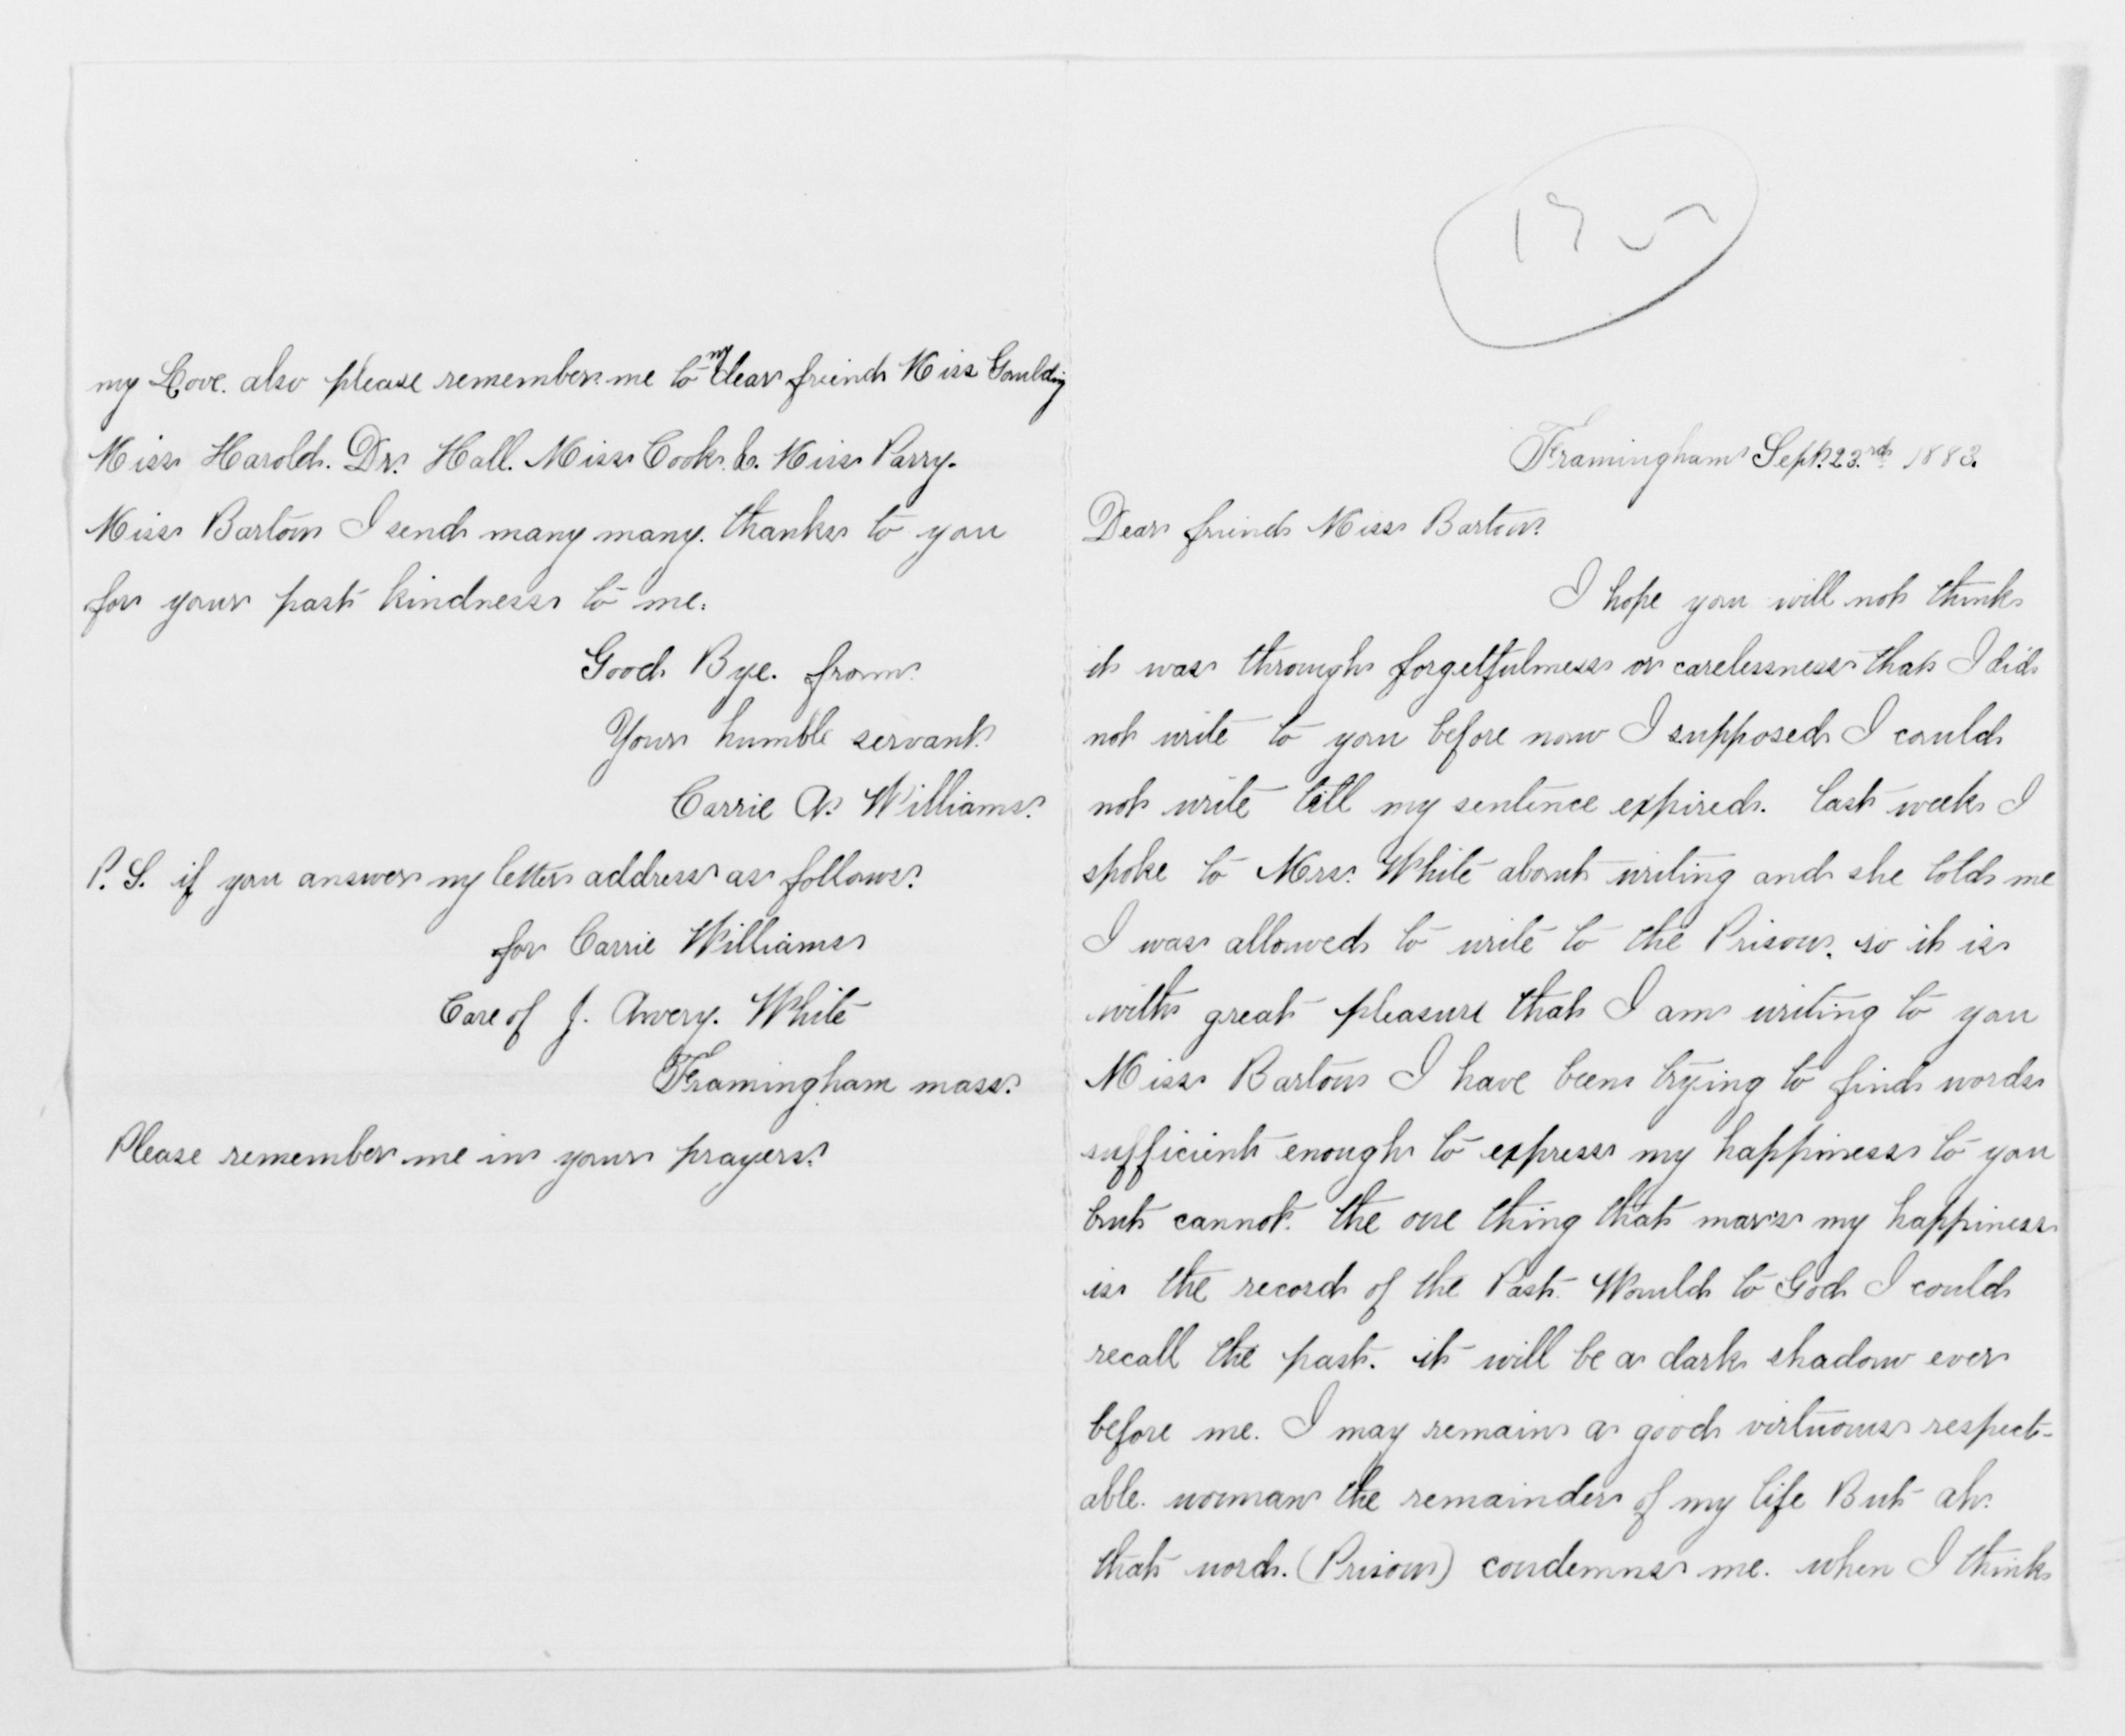 my Love. also please remember me to my dear friend Miss Goulding
Miss Harold. Dr. Hall. Miss Cook. &. Miss Parry.
Miss Barton I send many many. thanks to you
for your past kindness to me.
Good Bye. from.
Your humble servant.
Carrie A. Williams.
P. S. if you answer my letter address as follows.
for Carrie Williams
Care of J. Avery. White
Framingham mass.
Please remember me in your prayers.
Framingham Sept. 23.rd 1883.
Dear friend Miss Barton.
I hope you will not think
it was through forgetfulness or carelessness that I did
not write to you before now I supposed I could
not write till my sentence expired. last week I
spoke to Mrs. White about writing and she told me
I was allowed to write to the Prison. so it is
with great pleasure that I am writing to you
Miss Barton I have been trying to find words
sufficient enough to express my happiness to you
but cannot. the one thing that mars my happiness
is the record of the Past. Would to God I could
recall the past. it will be a dark shadow ever
before me. I may remain a good virtuous respect-
able. woman the remainder of my life But ah.
that word. (Prison) condemns me. when I think